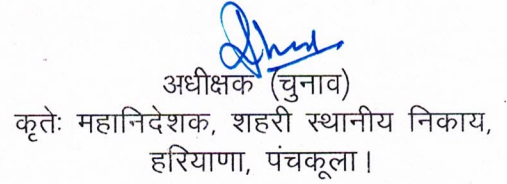 अधीक्षक (चुनाव)
कृतेः महानिदेशक, शहरी स्थानीय निकाय,
हरियाणा, पंचकूला।